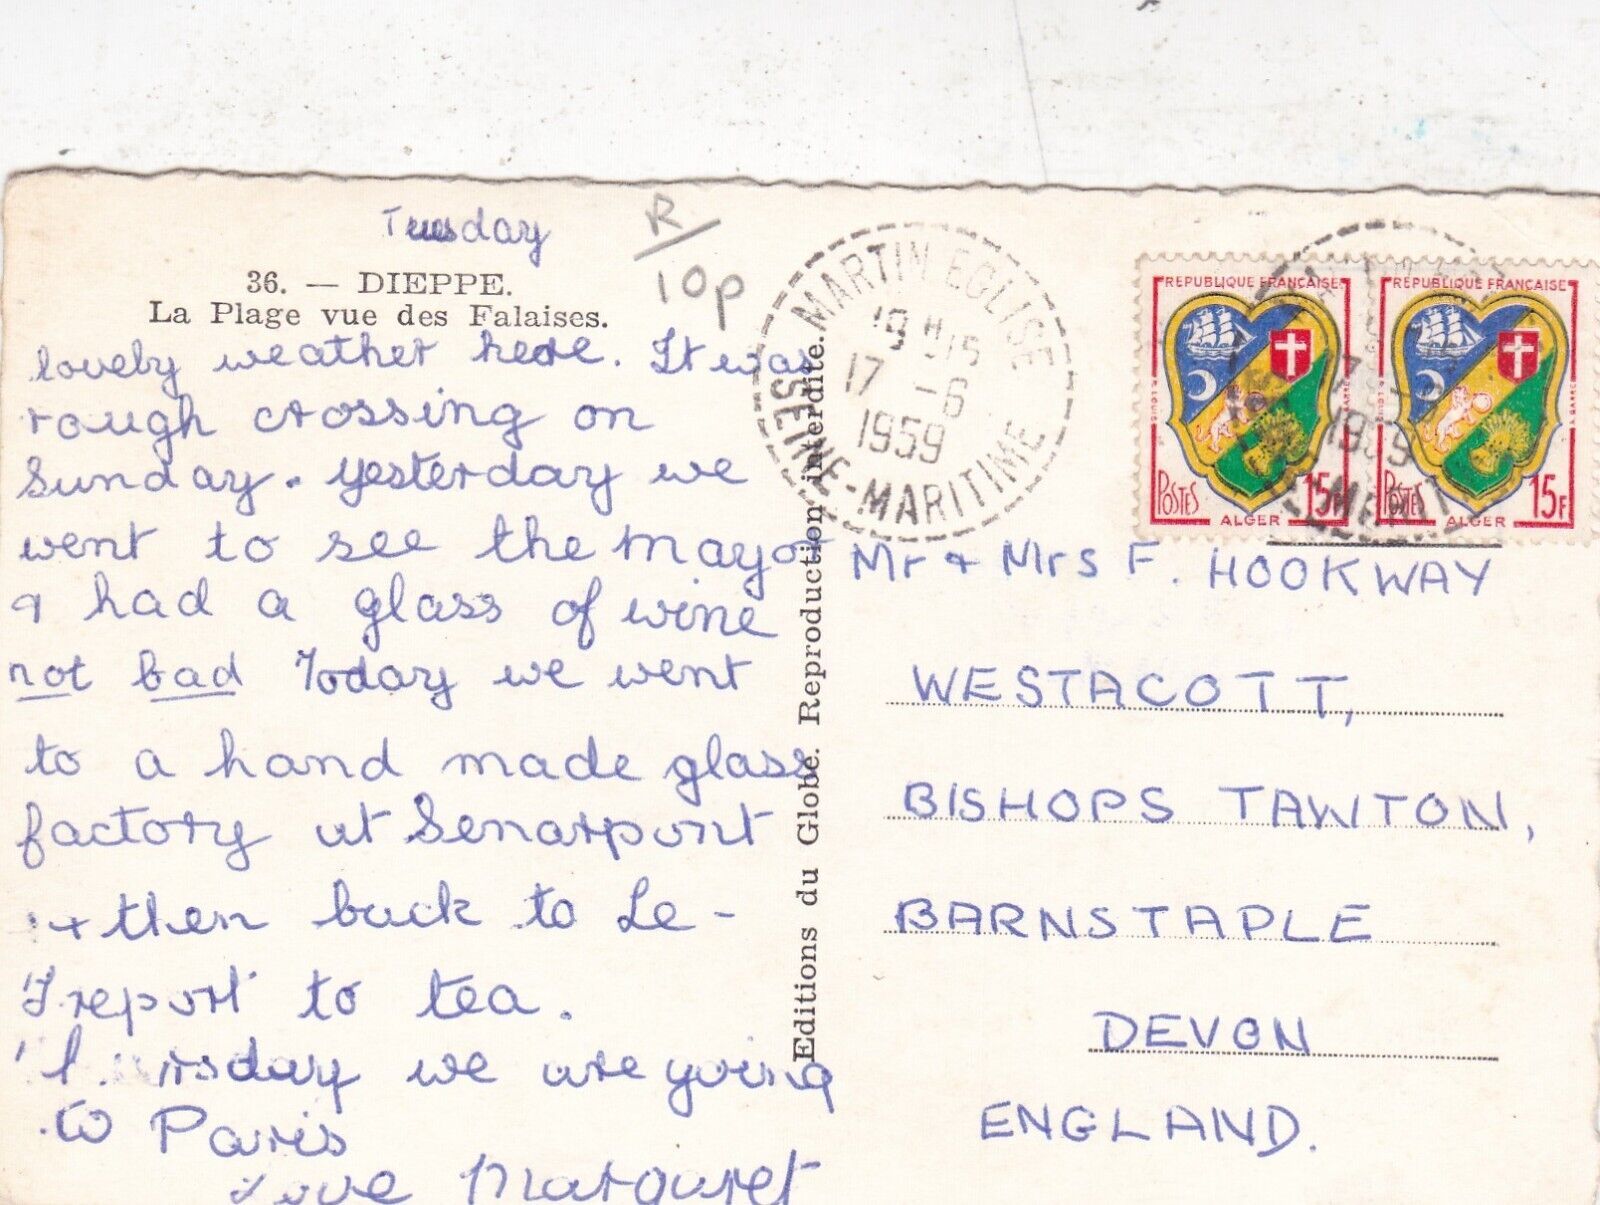 Tuesday
R/
10p
36. — DIEPPE.
La Plage vue des Falaises.
lovely weather here. It was
rough crossing on
Sunday. Yesterday we
went to see the mayor
& had a glass of wine
not bad Today we went
to a hand made glass
factory at Senarpont
+ then back to Le-
Treport to tea.
we are going
to Paris
Love Margaret
Editions du Globe. Reproduction interdite.
MARTIN EGLISE
19H15
17 -6
1959
SEINE-MARITIME
REPUBLIQUE FRANÇAISE
POSTES
15F
ALGER
REPUBLIQUE FRANÇAISE
POSTES
15F
ALGER
Mr & Mrs F. HOOKWAY
WESTACOTT,
BISHOPS TAWTON,
BARNSTAPLE
DEVON
ENGLAND.